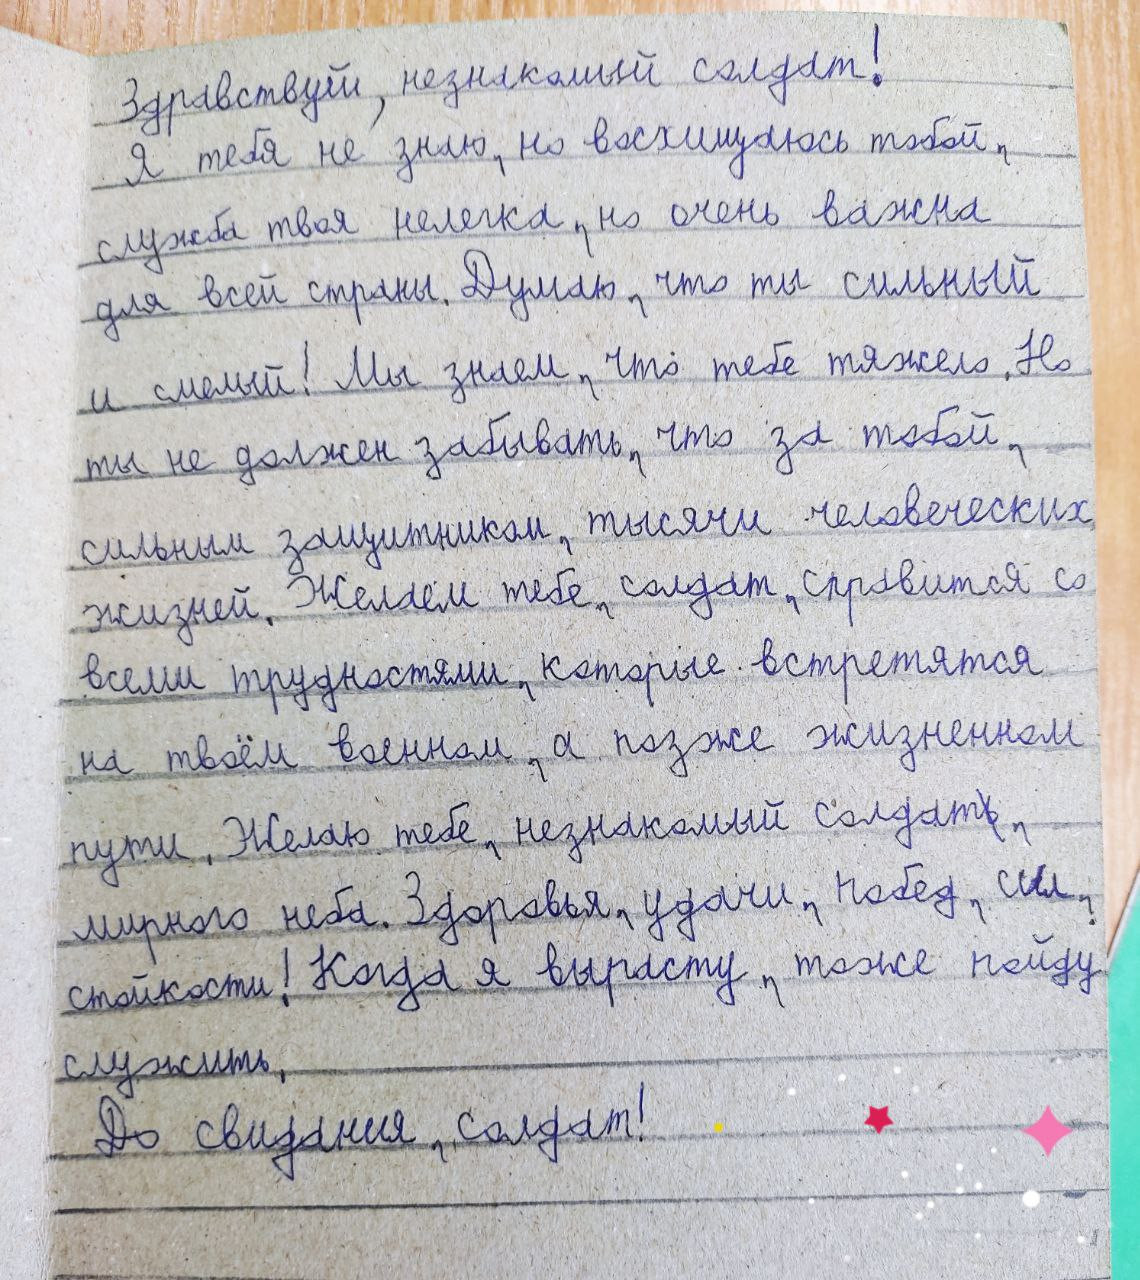 Здравствуй, незнакомый солдат!
Я тебя не знаю, но восхищаюсь тобой,
служба твоя нелегка, но очень важна
для всей страны. Думаю, что ты сильный
и смелый! Мы знаем, что тебе тяжело. Но
ты не должен забывать, что за тобой,
сильным защитником, тысячи человеческих
жизней. Желаем тебе, солдат, справится со
всеми трудностями, которые встретятся
на твоём военном, а позже жизненном
пути. Желаю тебе, незнакомый солдат,
мирного неба. Здоровья, удачи, побед, сил,
стойкости! Когда я вырасту, тоже пойду
служить.
До свидания, солдат!